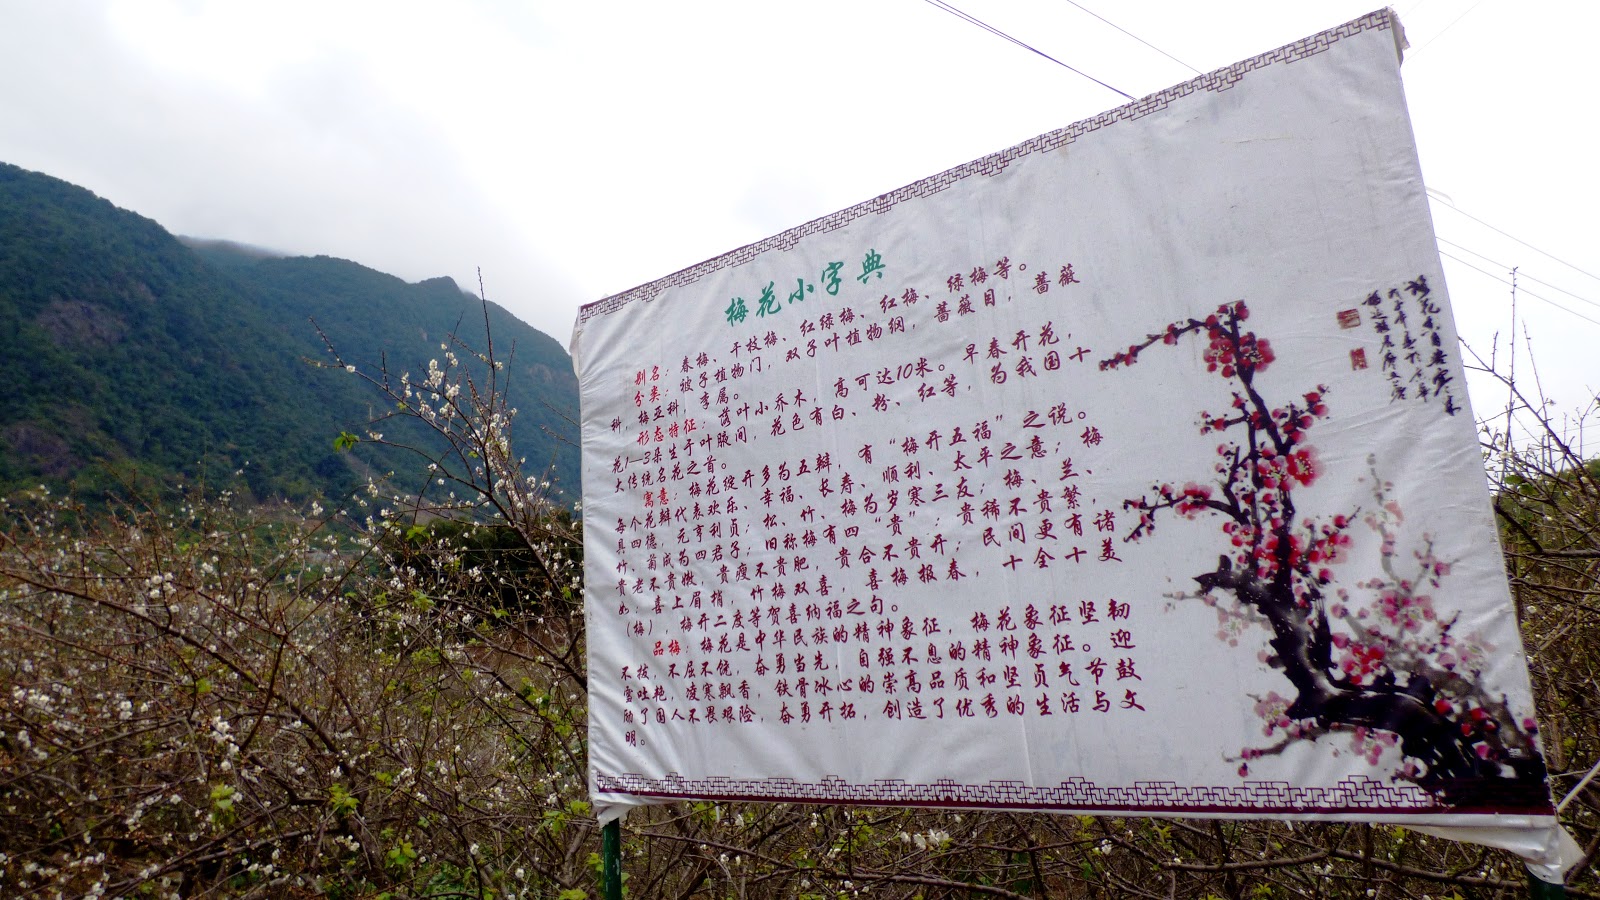 梅花小字典
别名：春梅、干枝梅、红绿梅、红梅、绿梅等。
分类：被子植物门，双子叶植物纲，蔷薇目，蔷薇
科，梅亚科，李属。
形态特征：落叶小乔木，高可达10米。早春开花，
花1—3朵生于叶腋间，花色有白、粉、红等，为我国十
大传统名花之首。
寓意：梅花绽开多为五瓣，有“梅开五福”之说。
每个花瓣代表欢乐、幸福、长寿、顺利、太平之意；梅
具四德，元亨利贞；松、竹、梅为岁寒三友；梅、兰、
竹、菊成为四君子；旧称梅有四“贵”：贵稀不贵繁，
贵老不贵嫩，贵瘦不贵肥，贵合不贵开；民间更有诸
如：喜上眉梢，竹梅双喜，喜梅报春，十全十美
（梅），梅开二度等贺喜纳福之句。
品梅：梅花是中华民族的精神象征，梅花象征坚韧
不拔，不屈不饶，奋勇当先，自强不息的精神象征。迎
雪吐艳，凌寒飘香，铁骨冰心的崇高品质和坚贞气节鼓
励了国人不畏艰险，奋勇开拓，创造了优秀的生活与文
明。